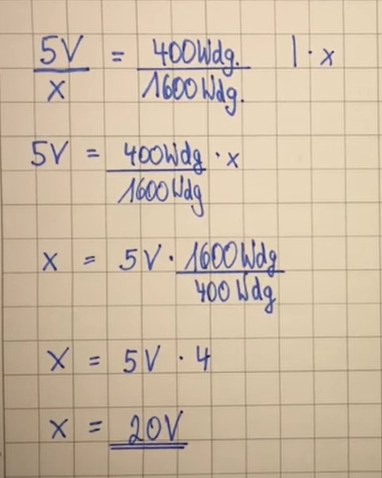 5V/x = 400Wdg./1600Wdg. | · x
5V = 400Wdg/1600Wdg · x
x = 5V · 1600Wdg/400Wdg
x = 5V · 4
x = 20V